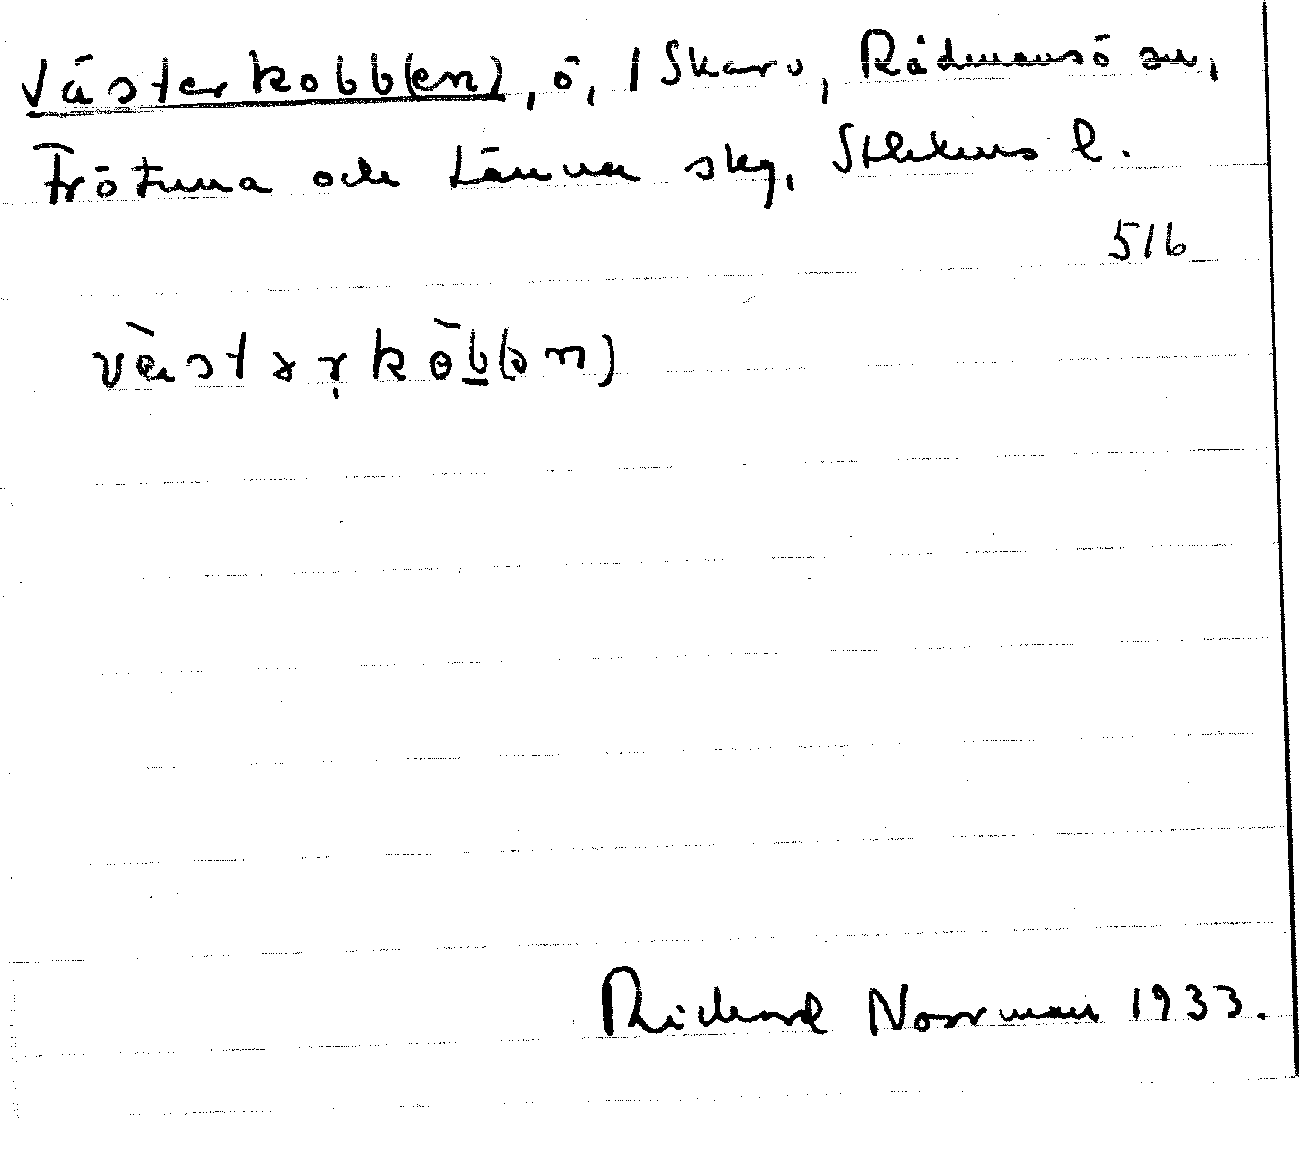 Västerkobb(en), ö, 1 Skarv, Rådmansö sn,
Frötuna och Länna skg, Sthlms l.
516
Rickard Norrman 1933.